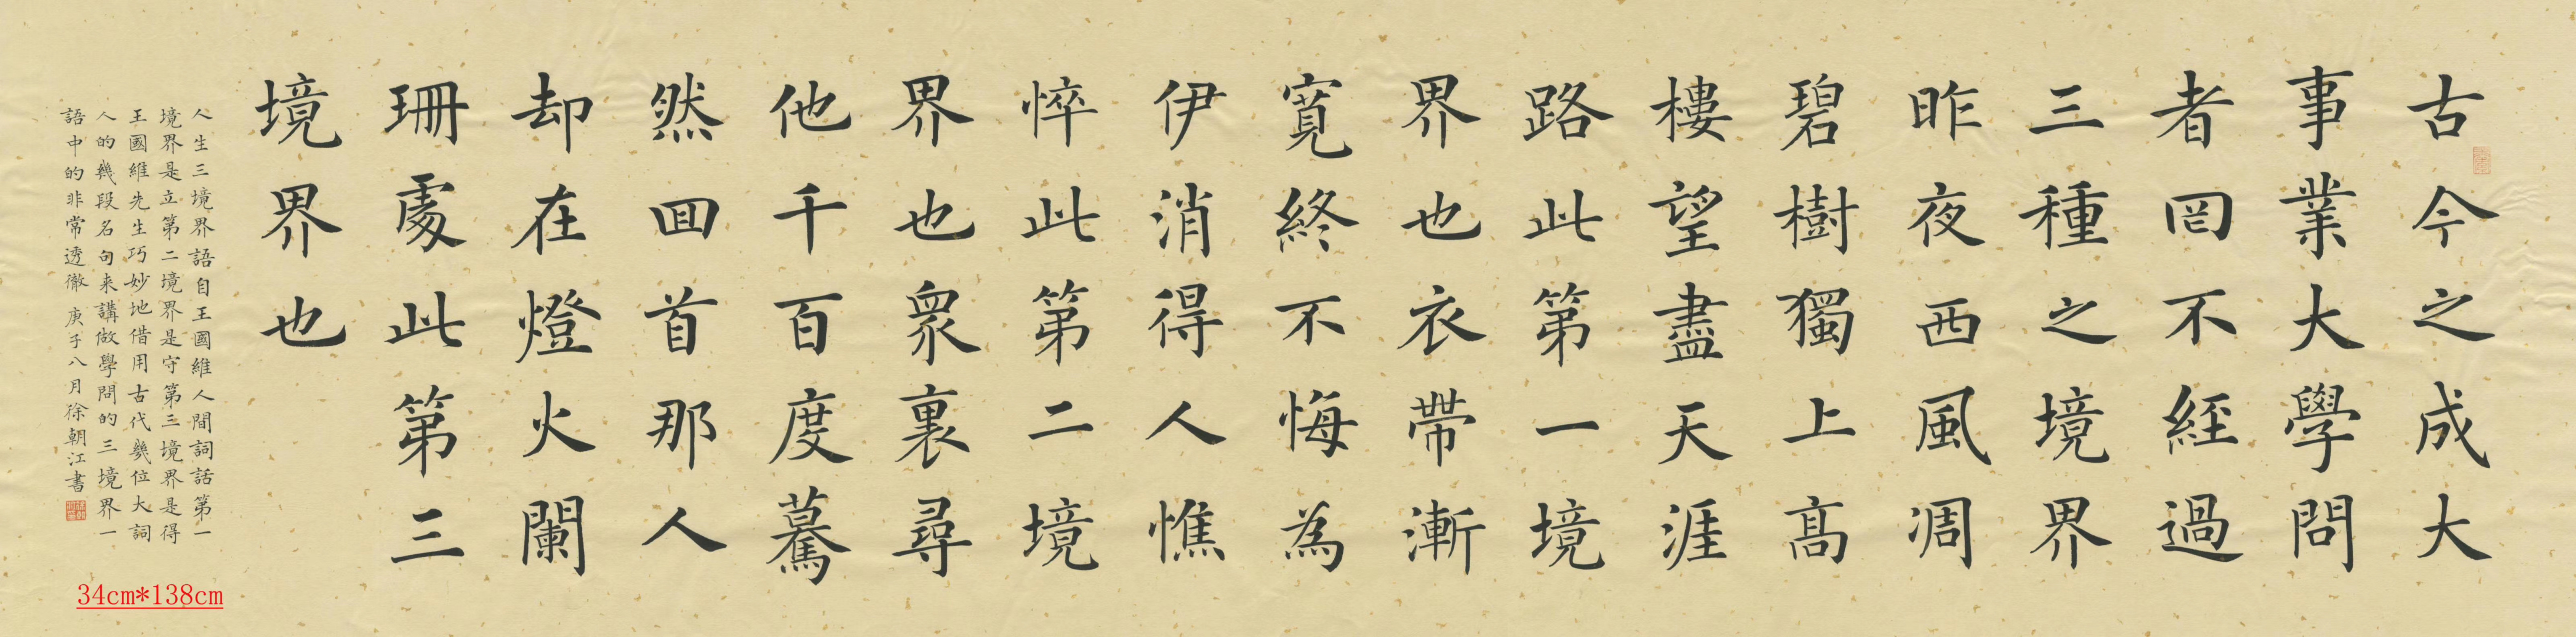 古今之成大
事業大學問
者罔不經過
三種之境界
昨夜西風凋
碧樹獨上高
樓望盡天涯
路此第一境
界也衣帶漸
寬終不悔為
伊消得人憔
悴此第二境
界也衆裏尋
他千百度驀
然回首那人
却在燈火闌
珊處此第三
境界也
人生三境界語自王國維人間詞話第一
境界是立第二境界是守第三境界是得
王國維先生巧妙地借用古代幾位大詞
人的幾段名句来講做學問的三境界一
語中的非常透徹 庚子八月徐朝江書
34cm*138cm